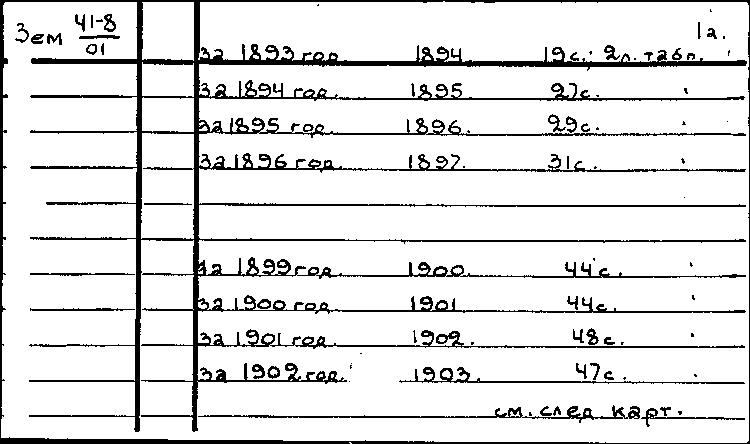 Зем 41-8/01
1а.
за 1893 год. 1894. 19с.; 2л. табл.
за 1894 год. 1895. 27с.
за 1895 год. 1896. 29с.
за 1896 год. 1897. 31с.
за 1899 год. 1900. 44с.
за 1900 год. 1901. 44с.
за 1901 год. 1902. 48с.
за 1902 год. 1903. 47с.
см. след. карт.